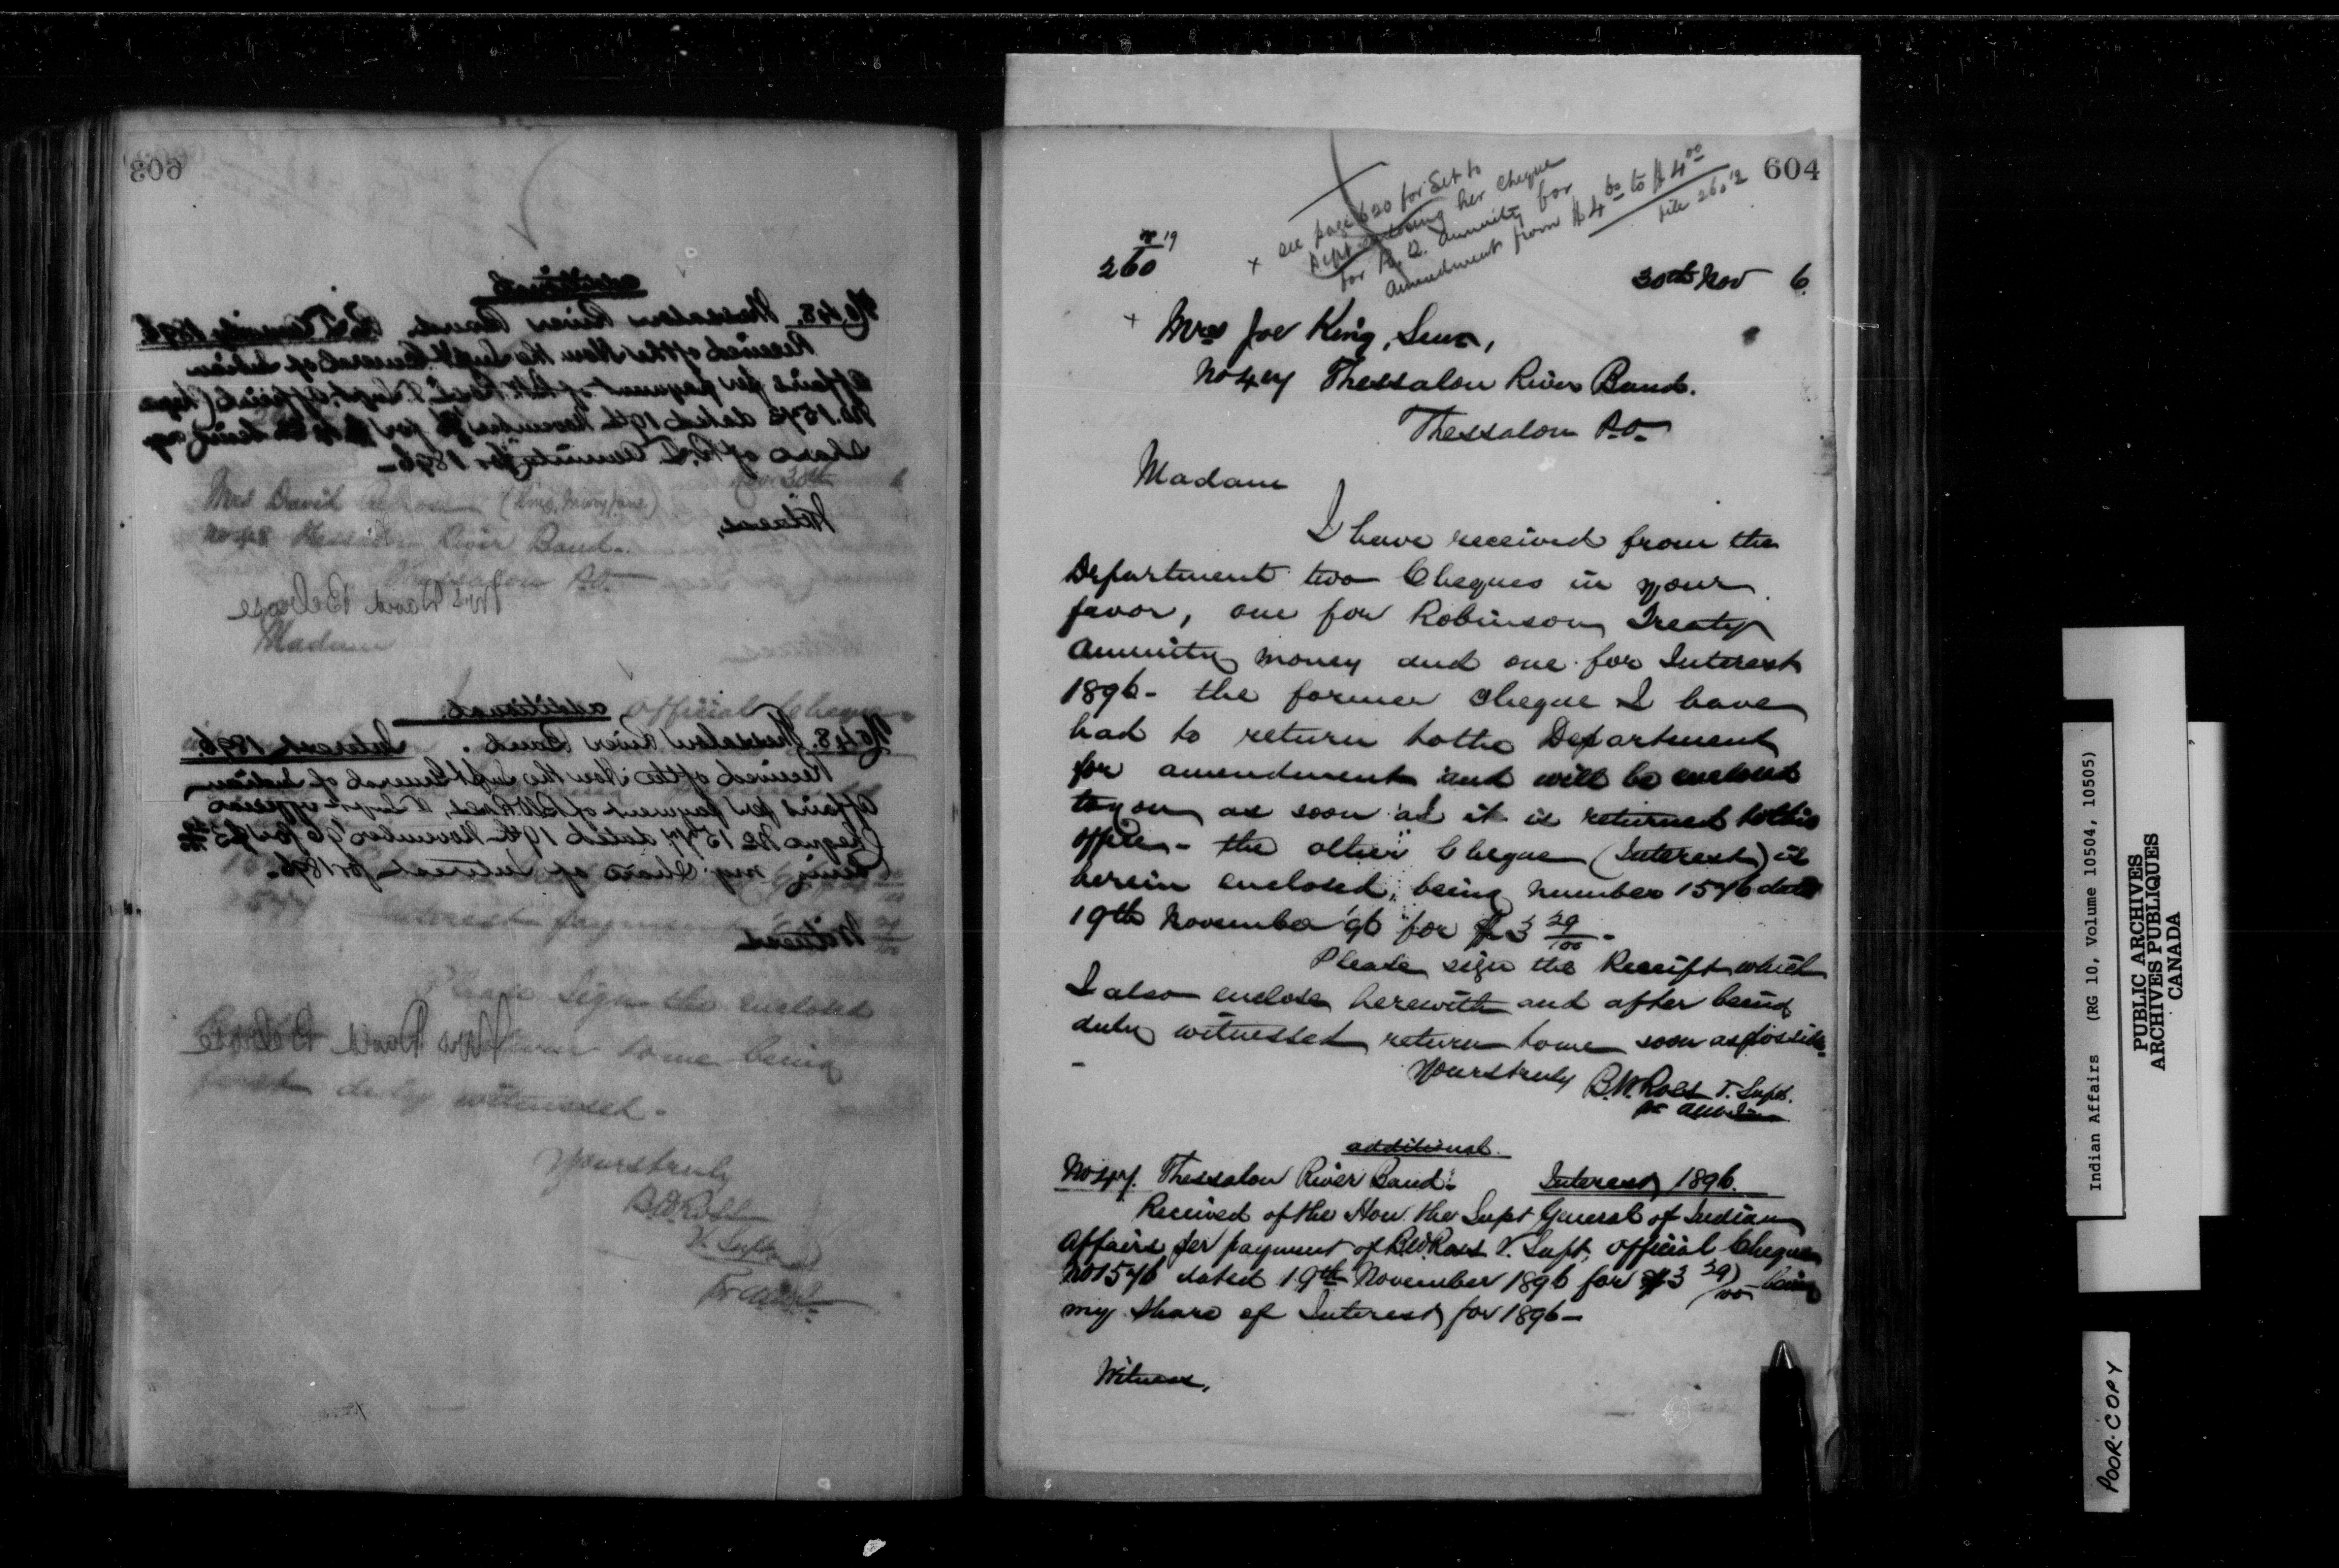 603
additional
No 48. Thessalon River Band. R.T. Annuity 1896
Received of the Hon the Supt General of Indian
Affairs per payment of B.W. Ross V. Supt, official Cheque
No. 1573 dated 19th November for being my
share of R.T. Annuity for 1896 -
Nov 30th 6
Witness,
Mrs David (King, Mary Jane)
No 48 Thessalon River Band.
Thessalon P.O.
Mrs David Belrose
Madam
official Cheque
additional.
No 48. Thessalon River Band. Interest 1896.
Received of the Hon the Supt General of Indian
Affairs per payment of BWRoss, V Supt official
Cheque No 1577 dated 19th November 96 for $3 29/100
being my Share of Interest for 1896.
1577 Interest payment
Witness
Please sign the enclosed
Mrs David Belrose
return to me being
first duly witnessed -
Yours truly
BWRoss
V. Supt
604
+ see page 620 for Let to
Dept enclosing her Cheque
for R.T. annuity for
Amendment from $4 60 to $4 00
file 260 12
19
260
30th Nov 6.
+ Mrs Joe King, Senr,
No 47 Thessalon River Band.
Thessalon P.O.
Madam
I have received from the
Department two Cheques in your
favor, one for Robinson Treaty
Annuity money and one for Interest
1896 - the former cheque I have
had to return to the Department
for amendment and will be enclosed
to you as soon as it is returned to this
office - the other Cheque (Interest) is
herein enclosed, being number 1576 dated
19th November '96 for $3 29/100 -
Please sign the Receipt which
I also enclose herewith and after being
duly witnessed return to me soon as possible
-
Yours truly B.W.Ross V. Supt.
additional.
No 47. Thessalon River Band. Interest 1896.
Received of the Hon. the Supt General of Indian
Affairs per payment of BWRoss V. Supt, official Cheque
No 1576 dated 19th November 1896 for $3 29/100 being
my share of Interest for 1896 -
Witness,
Indian Affairs (RG 10, Volume 10504, 10505)
PUBLIC ARCHIVES
ARCHIVES PUBLIQUES
CANADA
POOR COPY